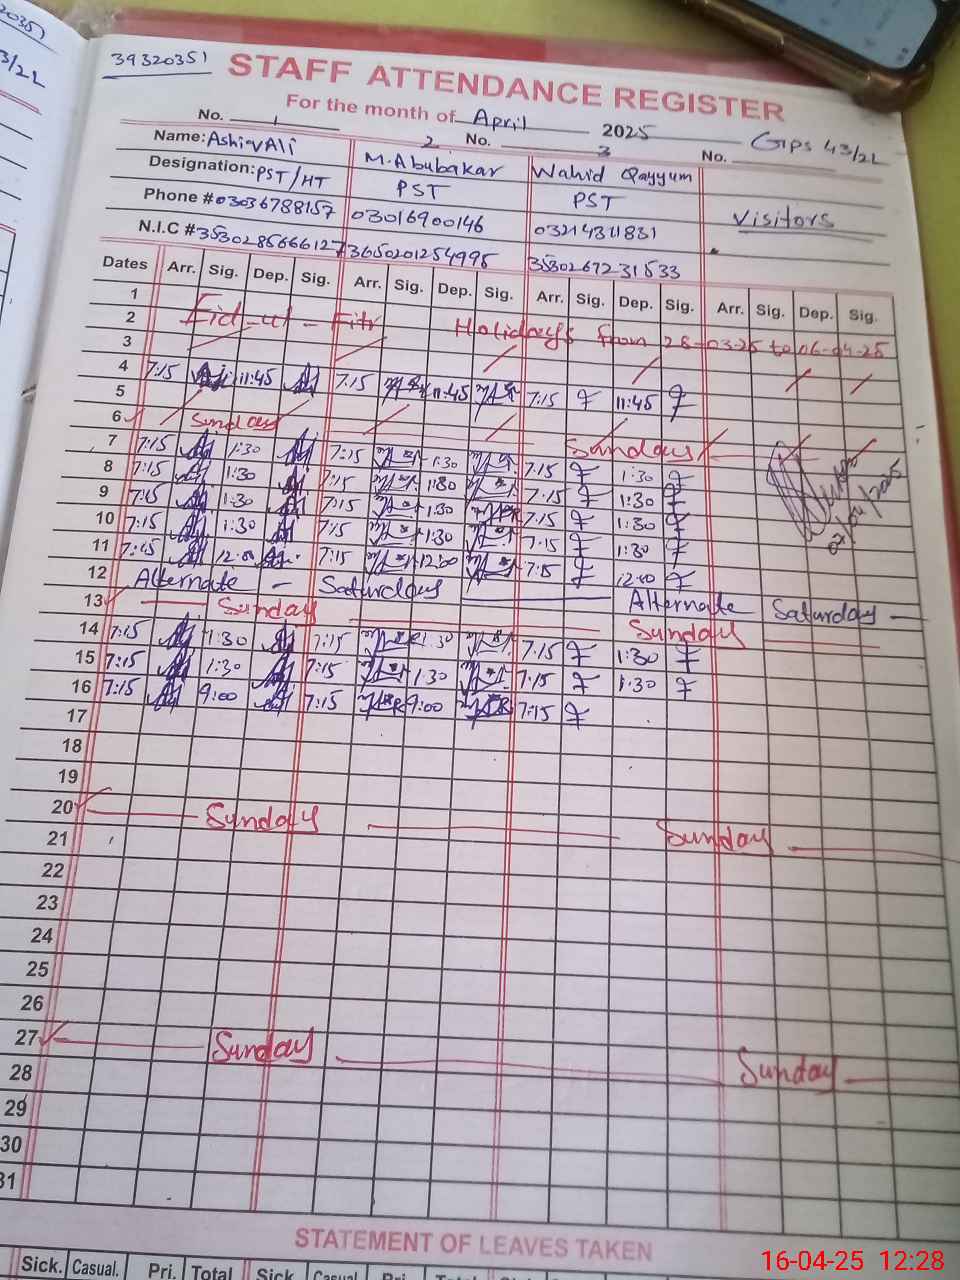 39320351
STAFF ATTENDANCE REGISTER
For the month of April 2025
No. 1 2 No. 3 No. GPS 43/2L
Name: Ashiq Ali M. Abubakar Wahid Qayyum
Designation: PST/HT PST PST Visitors
Phone # 03036788157 03016900146 03214311831
N.I.C # 3530285666127 3650201254995 3530267231533
Dates Arr. Sig. Dep. Sig. Arr. Sig. Dep. Sig. Arr. Sig. Dep. Sig. Arr. Sig. Dep. Sig.
1
2 Eid-ul-Fitr Holidays from 28-03-25 to 06-04-25
3
4 7:15 11:45 7:15 11:45 7:15 11:45
5
6 Sunday Sunday
7 7:15 1:30 7:15 1:30 7:15 1:30
8 7:15 1:30 7:15 1:30 7:15 1:30
9 7:15 1:30 7:15 1:30 7:15 1:30
10 7:15 1:30 7:15 1:30 7:15 1:30
11 7:15 12:00 7:15 12:00 7:15 12:00
12 Alternate - Saturday Alternate Saturday
13 Sunday Sunday
14 7:15 1:30 7:15 1:30 7:15 1:30
15 7:15 1:30 7:15 1:30 7:15 1:30
16 7:15 9:00 7:15 9:00 7:15
17
18
19
20 Sunday Sunday
21
22
23
24
25
26
27 Sunday Sunday
28
29
30
31
STATEMENT OF LEAVES TAKEN
Sick. Casual. Pri. Total Sick Casual Pri.
16-04-25 12:28